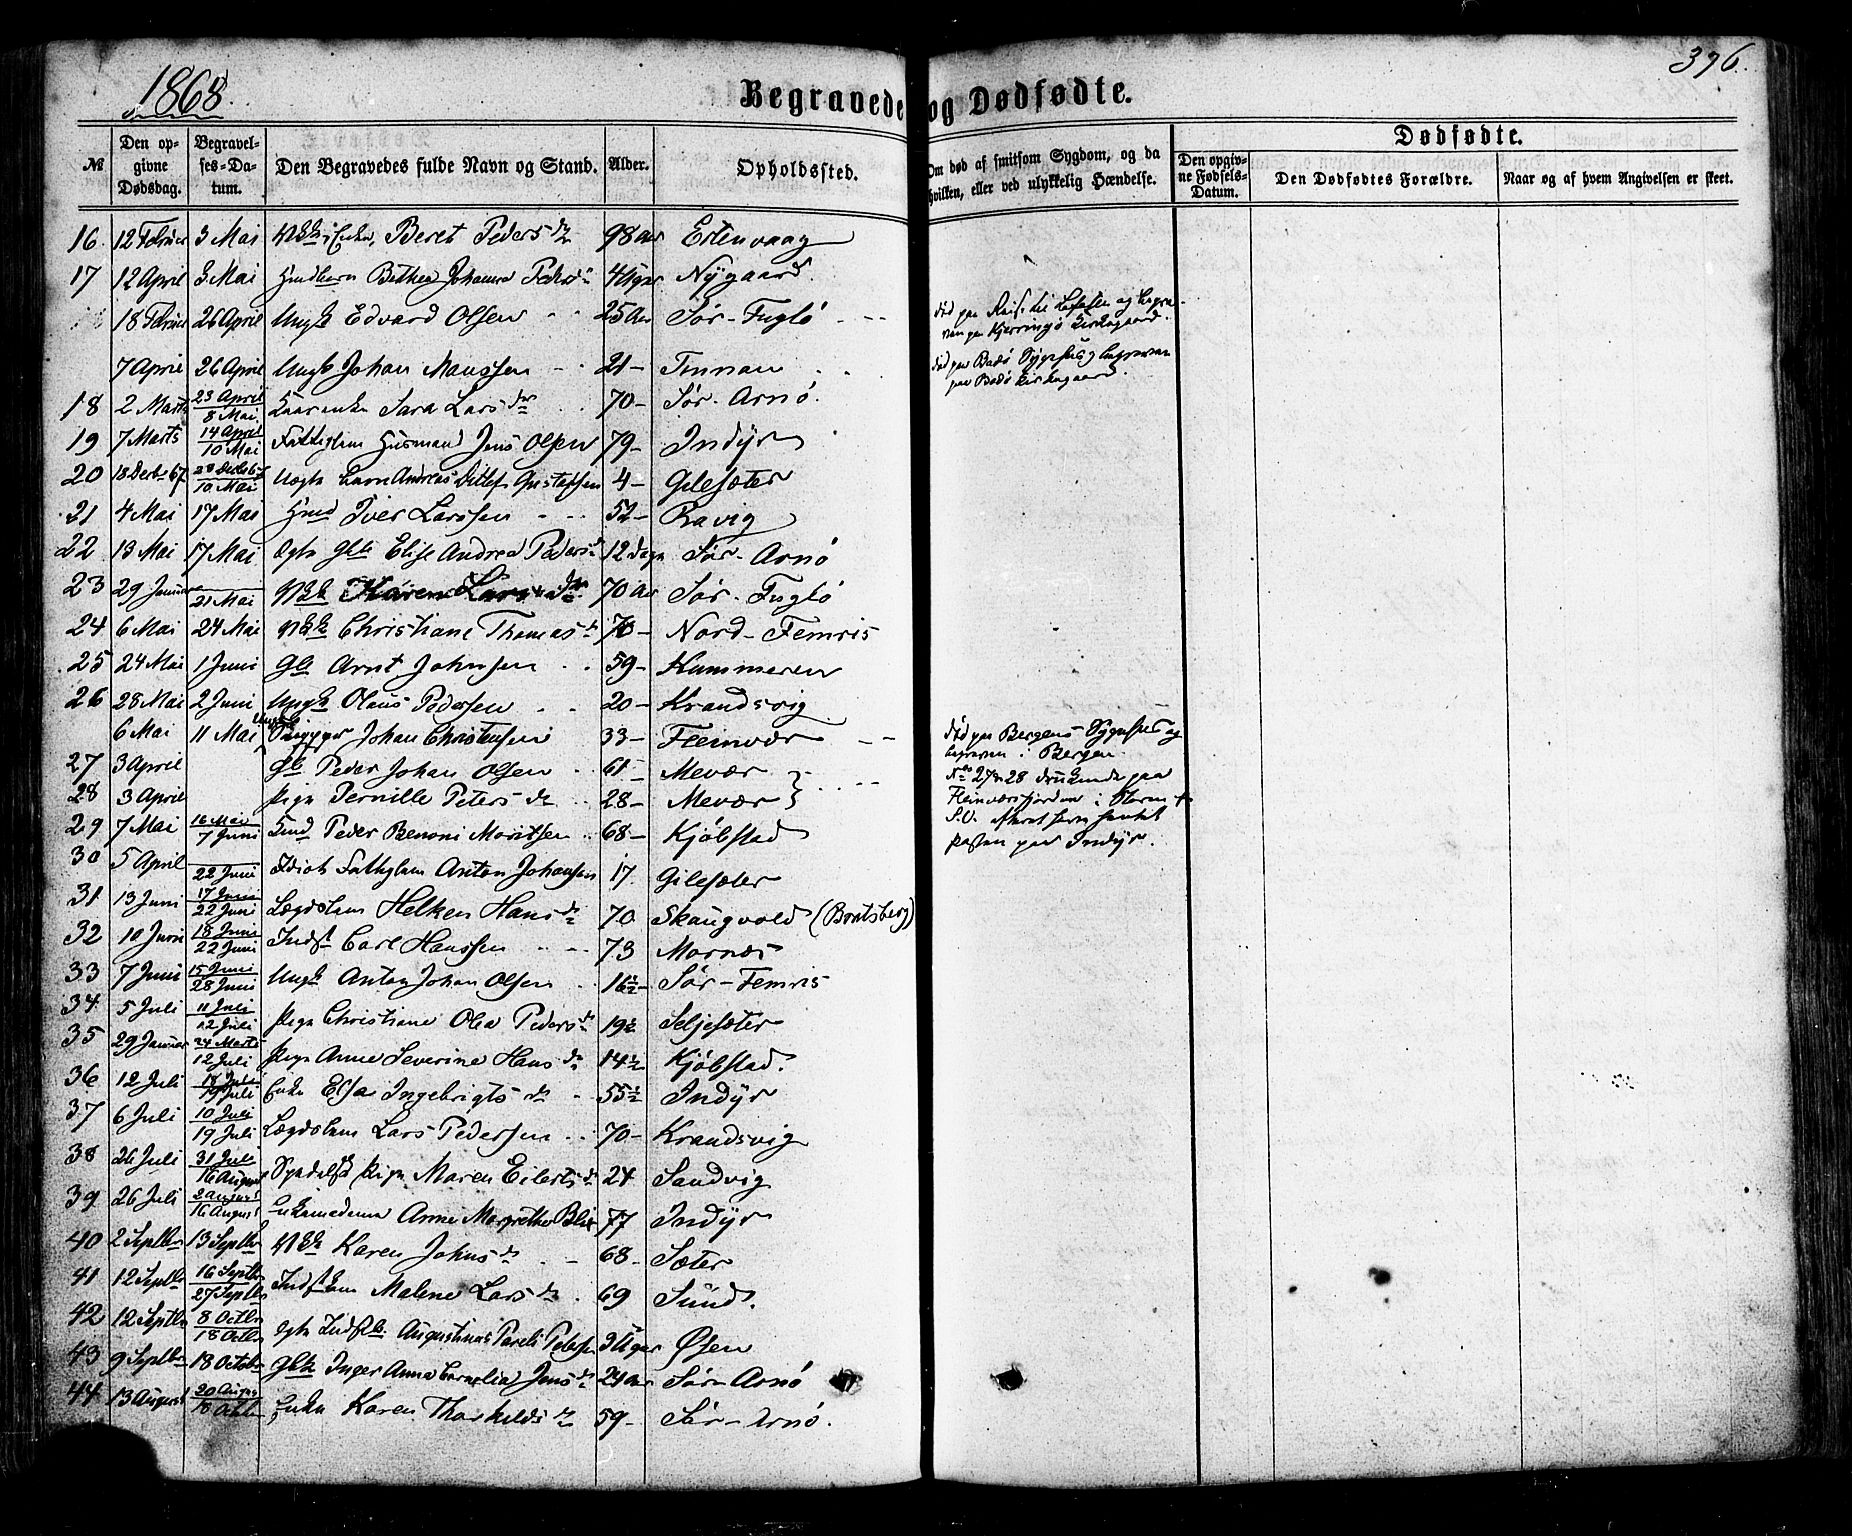 1868.
396.
Begravede og Dødfødte.
№
Den opgivne Dødsdag.
Begravelses-Datum.
Den Begravedes fulde Navn og Stand.
Alder.
Opholdssted.
Om død af smitsom Sygdom, og da hvilken, eller ved ulykkelig Hændelse.
Dødfødte.
Den opgivne Fødsels-Datum.
Den Dødfødtes Forældre.
Naar og af hvem Angivelsen er skeet.
16. 12 Februar 3 Mai Beret Peders dr 98 Aar Estenvaag
17 12 April 3 Mai Bethea Johanna Peders dr 4 Uger Nygaard
18 Februar 26 April Ungk Edvard Olsen 25 Aar Sør-Fuglø død paa Reise til Lofoten og begraven paa Kjerringø Kirkegaard.
7 April 26 April Ungk Johan Monssen 21 Tennan død paa Bodø Sygehus og begraven paa Bodø Kirkegaard.
18 2 Marts 23 April 8 Mai Kaarenke Sara Lars dr 70 Sør-Arnø.
19 7 Marts 14 April 10 Mai Fattiglem Husmand Jens Olsen 79 Indyr
20 18 Decbr 67 28 Decbr 67 10 Mai Andreas Ditlef Gustafsen 4 Gilesæter
21 4 Mai 17 Mai Huusmd Iver Larssen 52 Ravig
22 13 Mai 17 Mai Elise Andrea Peders dr 12 Dage Sør-Arnø
23 29 Januar 21 Mai Karen Lars dr 70 Aar Sør-Fuglø
24 6 Mai 24 Mai Christiane Thomas dr 70 Nord-Femris
25 24 Mai 1 Juni Arnt Johnsen 59 Kummeren
26 28 Mai 2 Juni Ungk Olaus Pedersen 20 Krandsvig
6 Mai 11 Mai Johan Christensen 33 Fleinvær død paa Bergens Sygehus og begraven i Bergen
27 3 April Peder Johan Olsen 61 Mevær No 27 & 28 druknede paa
28 3 April Pige Pernille Peters dr 28 Mevær Fleinværfjorden i Storm
29 7 Mai 16 Mai 7 Juni Peder Benoni Moritsen 68 Kjøbstad
Posten paa Indyr.
30 5 April 22 Juni Idiot Fattiglem Anton Johansen 17 Gilesæter
31 13 Juni 17 Juni 22 Juni Lægdslem Helken Hans dr 70 Skaugvold (Bratsberg)
32 10 Juni 18 Juni 22 Juni Indst Carl Hanssen 73 Mornæs
33 7 Juni 15 Juni 28 Juni Ungk Anton Johan Olsen 16½ Sør-Femris
34. 5 Juli 11 Juli 12 Juli Pige Christiane Olea Peders dr 19½ Seljesæter
35 29 Januar 24 Marts 12 Juli Pige Anne Severine Hans dr 14½ Kjøbstad.
36 12 Juli 18 Juli 19 Juli Enke Elsa Ingebrigts dr 55½ Indyr
37 6 Juli 10 Juli 19 Juli Lægdslem Lars Pedersen 70 Krandsvig
38 26 Juli 31 Juli 16 August Spedalsk Pige Maren Eilerts dr 24 Sandvig
39 26 Juli 2 August 16 August Enkemadame Anne Margrethe Blix 77 Indyr
40 2 Septbr 13 Septbr Karen Johns dr 68 Sæter
41 12 Septbr 16 Septbr 27 Septbr Malene Lars dr 69 Sund.
42 12 Septbr 8 Octbr 18 Octbr Augustinus Pareli Petersen 3 Uger Øsen
43 9 Septbr 18 Octobr Inger Anna Cornelia Jens dr 24 Aar Sør-Arnø
44 13 August 20 August 18 Octbr Enke Karen Thorkilds dr 59 Sør-Arnø.